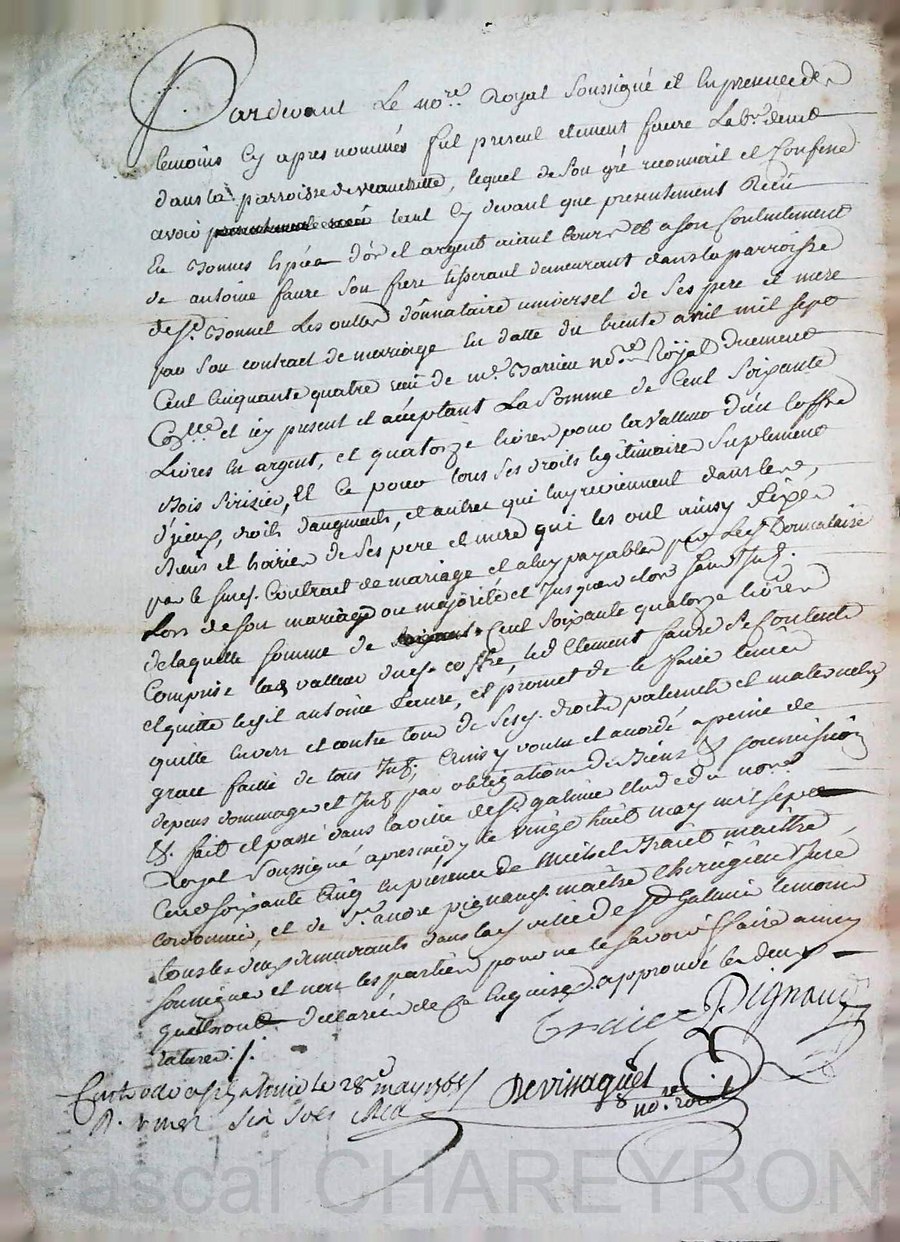 Pardevant Le no.re Royal Soussigné et En presence des
temoins Cy apres nommés fut present clement faure Lab.r demt
dans la parroisse de veauchette, lequel de son gré reconnait et Confesse
avoir tout Cy devant que presentement Recu
En Bonnes Espèces d'or et argent aiant Cours et a son Contentement
de antoine faure son frere tisserant demeurant dans la parroisse
de S.t Bonnet Les oulles donnataire universel de ses pere et mere
par son contract de mariage En datte du trente avril mil sept
Cent Cinquante quatre recü de m.e Barrieu no.re Royal duement
Con.llé et icy present et acceptant La Somme de Cent Soixante
Livres En argent, et quatorze livres pour la valleur d'un Coffre
Bois Serisier, Et Ce pour tous ses droits legitimaires suplement
d'yceux, droits d'augments, et autres qui luy reviennent dans les
Biens et hoiries de ses pere et mere qui les ont ainsy fixés
par le susd. Contract de mariage et a luy payables par Led. Donnataire
Lors de son mariage ou majorité et Jusques alors sans Jnt.
de laquelle somme de Cent soixante quatorze livres
Comprise la valleur dud. coffre, led. Clement faure se Contente
et quitte led. antoine faure, et promet de le faire tenir
quitte envers et contre tous de sesd. droits paternels et maternels
grace faitte de tous Jnt. Ainsy voulu et acordé a peine de
depens dommages et Jnt. par obligation de Biens et soumissions
&. fait et passé dans la ville de S.t galmier Etude du no.re
Royal Soussigné apres midy le vingt huit may mil sept
Cent soixante Cinq En présence de maitre
cordonnier, et de S.r andre pignaud maitre Chirurgien Juré
tous les deux demeurants dans lad. ville de S.t Galmier temoins
soussignes et non les parties pour ne le savoir faire ainsy
quels ont declarés de Ce Enquises approuvé les deux
ratures ./.
Pignaud
Controllé a S.t galmier le 28.e may 1765
R. six sols
Devinaques
no.re roial
Pascal CHAREYRON